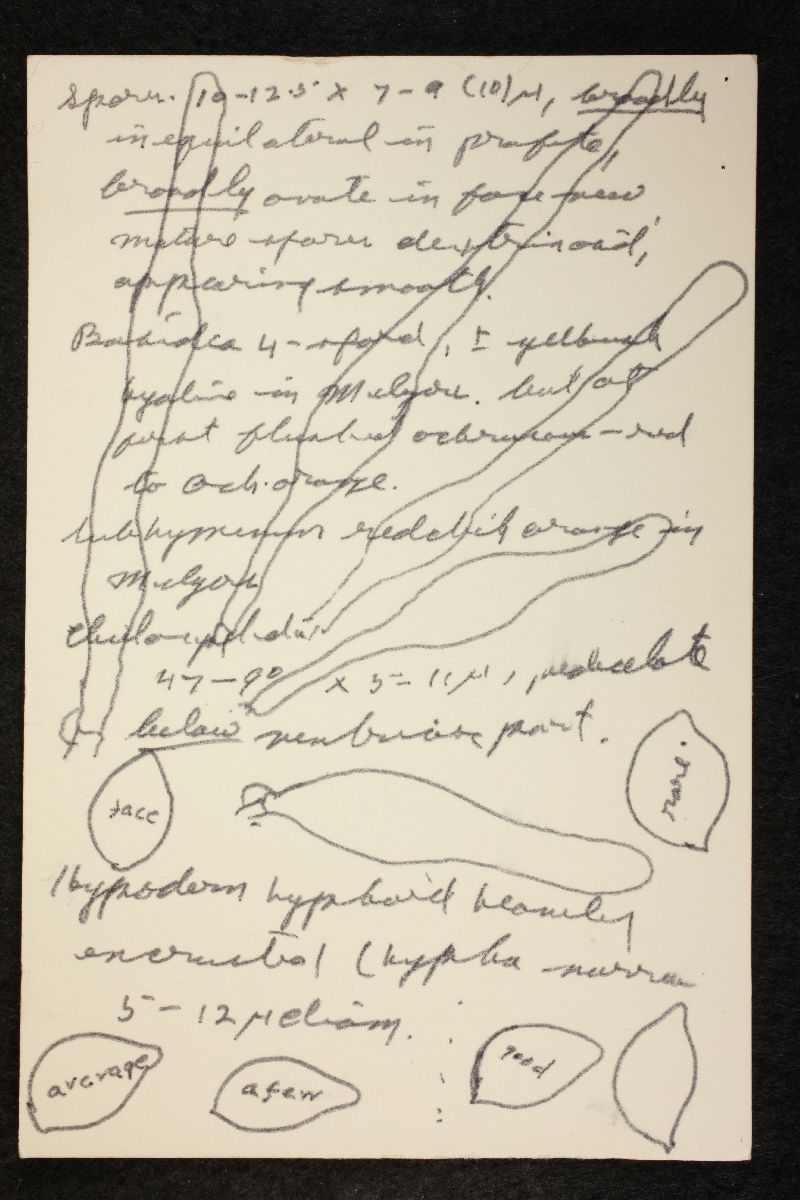 Spores. 10-12.5 x 7-9 (10) μ, broadly
inequilateral in profile,
broadly ovate in face view
mature spores dextrinoid,
appearing smooth.
Basidia 4-spored, ± yellowish
hyaline in Melzers. but at
first flushed ochraceous-red
to och-orange.
Subhymenium reddish orange in
Melzers
Cheilocystidia
47-90 x 5-11 μ, pedicelate
below ventricose part.
face
rare.
Hypoderm hyphoid heavily
encrusted (hypha narrow
5-12 μ diam.
average
a few
good